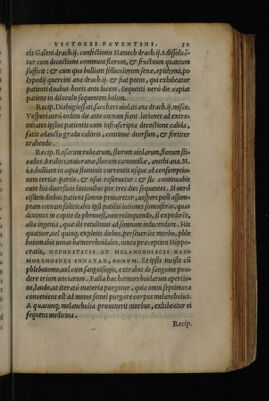 VICTORIS FAVENTINI. 32
cis Galeni drach.ij. confectionis Hamech drach.ij.s. dissoluā-
tur cum decoctione communi florum, & fructuum quantum
sufficit: & cum qua bulliant folliculorum sene, epithymi, po
lypodij quercini ana drach.ij. & fiat potio, qui exhibeatur
patienti duabus horis ante lucem. Sequenti uerò die capiat
patiens in diluculo sequentem bolum.
Recip. Diabuglossati, sacchari uiolati ana drach.ij. misce.
Vesperi uerò eodem die ante cœnam fiant lotiones ad extre-
mitates ipsius patientis cum infrascripta decoctione calida,
satis aducto gradu caloris, continue deorsum, & fortiter
trahendo.
Recip. Rosarum rubearum, florum uiolarum, florum sti-
cados Arabici, maioranæ, florum camomillæ, an. M.
i.s. bulliant in aquis fluminis currentis usque ad consumptio-
nem tertiæ partis, & usui reseruatur: & sic continuabis
cum his duabus lotionibus per tres dies sequentes. Si uerò
eisdem diebus patiens somno priuetur, expedit post assum-
ptam cœnam sollicitari ipsi patiēti lotiones somniferæ, quæ
conueniunt in capite de phrenesi, non relinquendo, si expedierit,
alia ingenia, quæ diximus ad somnum inducendum. His
quatuor, uel quinq; expletis diebus, perseuerāte morbo, phle
botomabis uenas hæmorrhoidales, iuxta præceptum Hippo-
cratis, NEPHRITICIS ET MELANCHOLICIS HAE-
MORRHOIDES INNATAE, BONVM. Et ipsis incisis cū
phlebotomo, uel cum sanguisugis, extrahes de sanguine pon-
dere trium unciarum. Facta hac hæmorrhoidarum apertio-
ne, laudo, ut iterato materia purgetur, quia omni septimana
conueniens est ad minus semel purgare corpus melancholici.
A quacunq; melancholia proueneris morbus, exhibeatur ei
sequens medicina.
Recip.